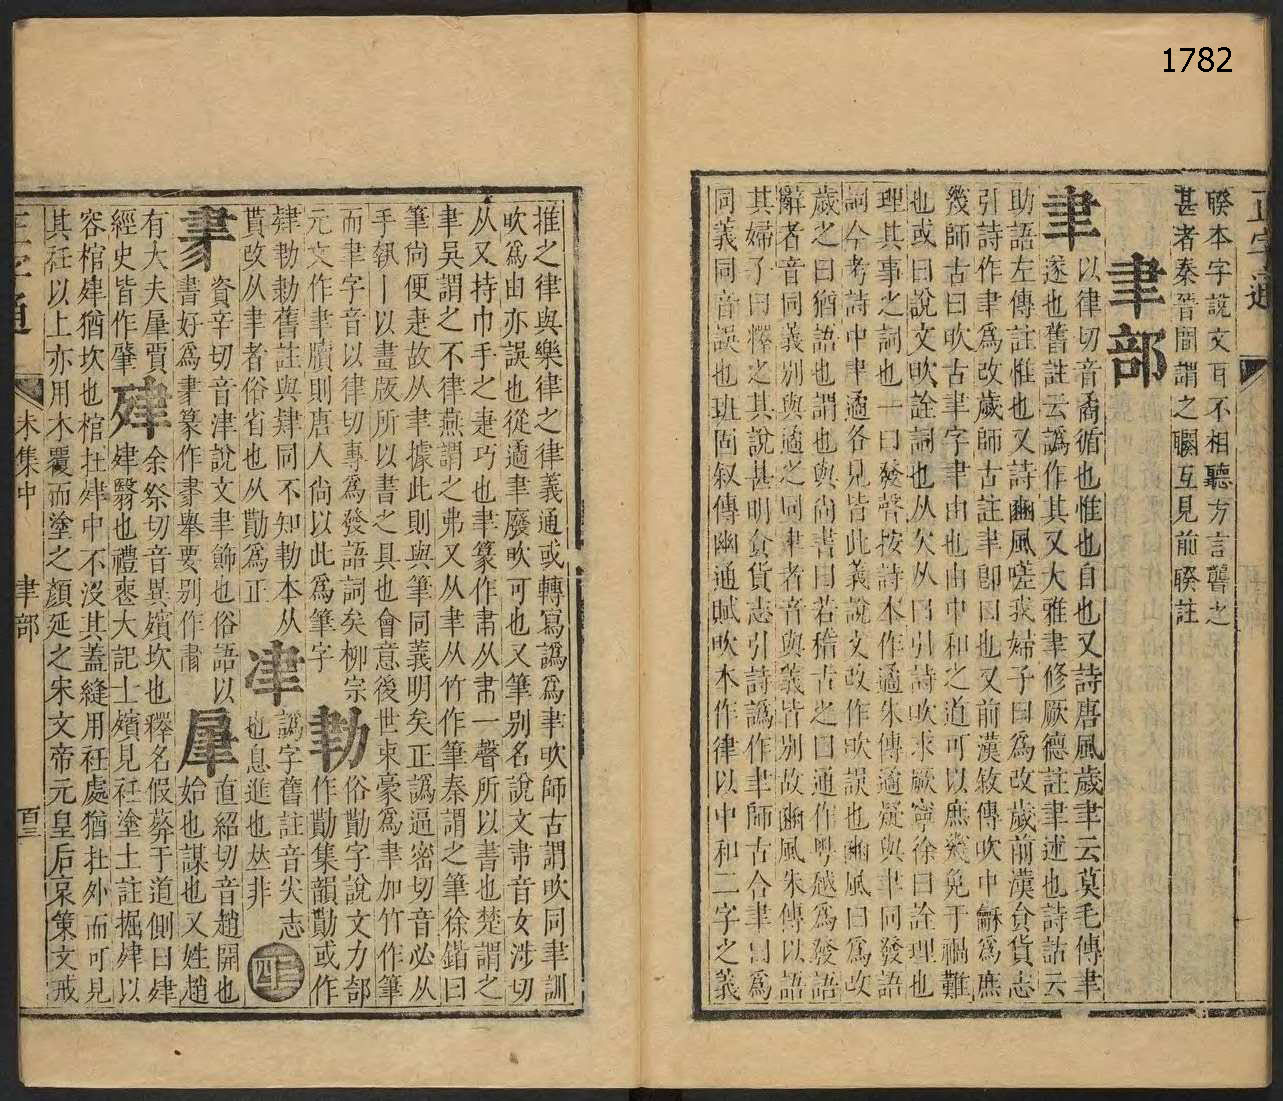 1782
正字通
聧本字說文耳不相聽方言聾之
甚者秦晉間謂之䦧互見前聧註
聿部
聿
以律切音矞循也惟也自也又詩唐風歲聿云莫毛傳聿
遂也舊註云譌作其又大雅聿修厥德註聿述也詩詁云
助語左傳註惟也又詩豳風嗟我婦子曰爲改歲前漢食貨志
引詩作聿爲改歲師古註聿卽曰也又前漢敘傳欥中龢爲庶
幾師古曰欥古聿字聿由也由中和之道可以庶幾免于禍難
也或曰說文欥詮詞也从欠从曰引詩欥求厥寧徐曰詮理也
理其事之詞也一曰發聲按詩本作遹朱傳遹疑與聿同發語
詞今考詩中聿遹各見皆此義說文改作欥誤也豳風曰爲改
歲之曰猶語也謂也與尚書曰若稽古之曰通作粤越爲發語
辭者音同義別與遹之同聿者音與義皆別故豳風朱傳以語
其婦子曰釋之其說甚明食貨志引詩譌作聿師古合聿曰爲
同義同音誤也班固叙傳幽通賦欥本作律以中和二字之義
推之律與樂律之律義通或轉寫譌爲聿欥師古謂欥同聿訓
欥爲由亦誤也從遹聿廢欥可也又筆別名說文帇音女涉切
从又持巾手之疌巧也聿篆作肅从帇一聲所以書也楚謂之
聿吳謂之不律燕謂之弗又从聿从竹作筆秦謂之筆徐鍇曰
筆尚便疌故从聿據此則與筆同義明矣正譌逼密切音必从
手執丨以畫版所以書之具也會意後世束豪爲聿加竹作筆
而聿字音以律切專爲發語詞矣柳宗
元文作聿牘則唐人尚以此爲筆字
俗勩字說文力部
作勩集韻勩或作
肄勚勦舊註與肄同不知勚本从
貰改从聿者俗省也从勩爲正
譌字舊註音尖志
也息進也𠀤非
資辛切音津說文聿飾也俗語以
書好爲𦘔篆作𦘔舉要別作肅
肁
直紹切音趙開也
始也謀也又姓趙
有大夫肁賈
經史皆作肇
肂
余祭切音異殯坎也釋名假葬于道側曰肂
肂翳也禮喪大記士殯見衽塗土註掘肂以
容棺肂猶坎也棺在肂中不沒其蓋縫用衽處猶在外而可見
其衽以上亦用木覆而塗之顏延之宋文帝元皇后哀策文戒
正字通
未集中
聿部
百三